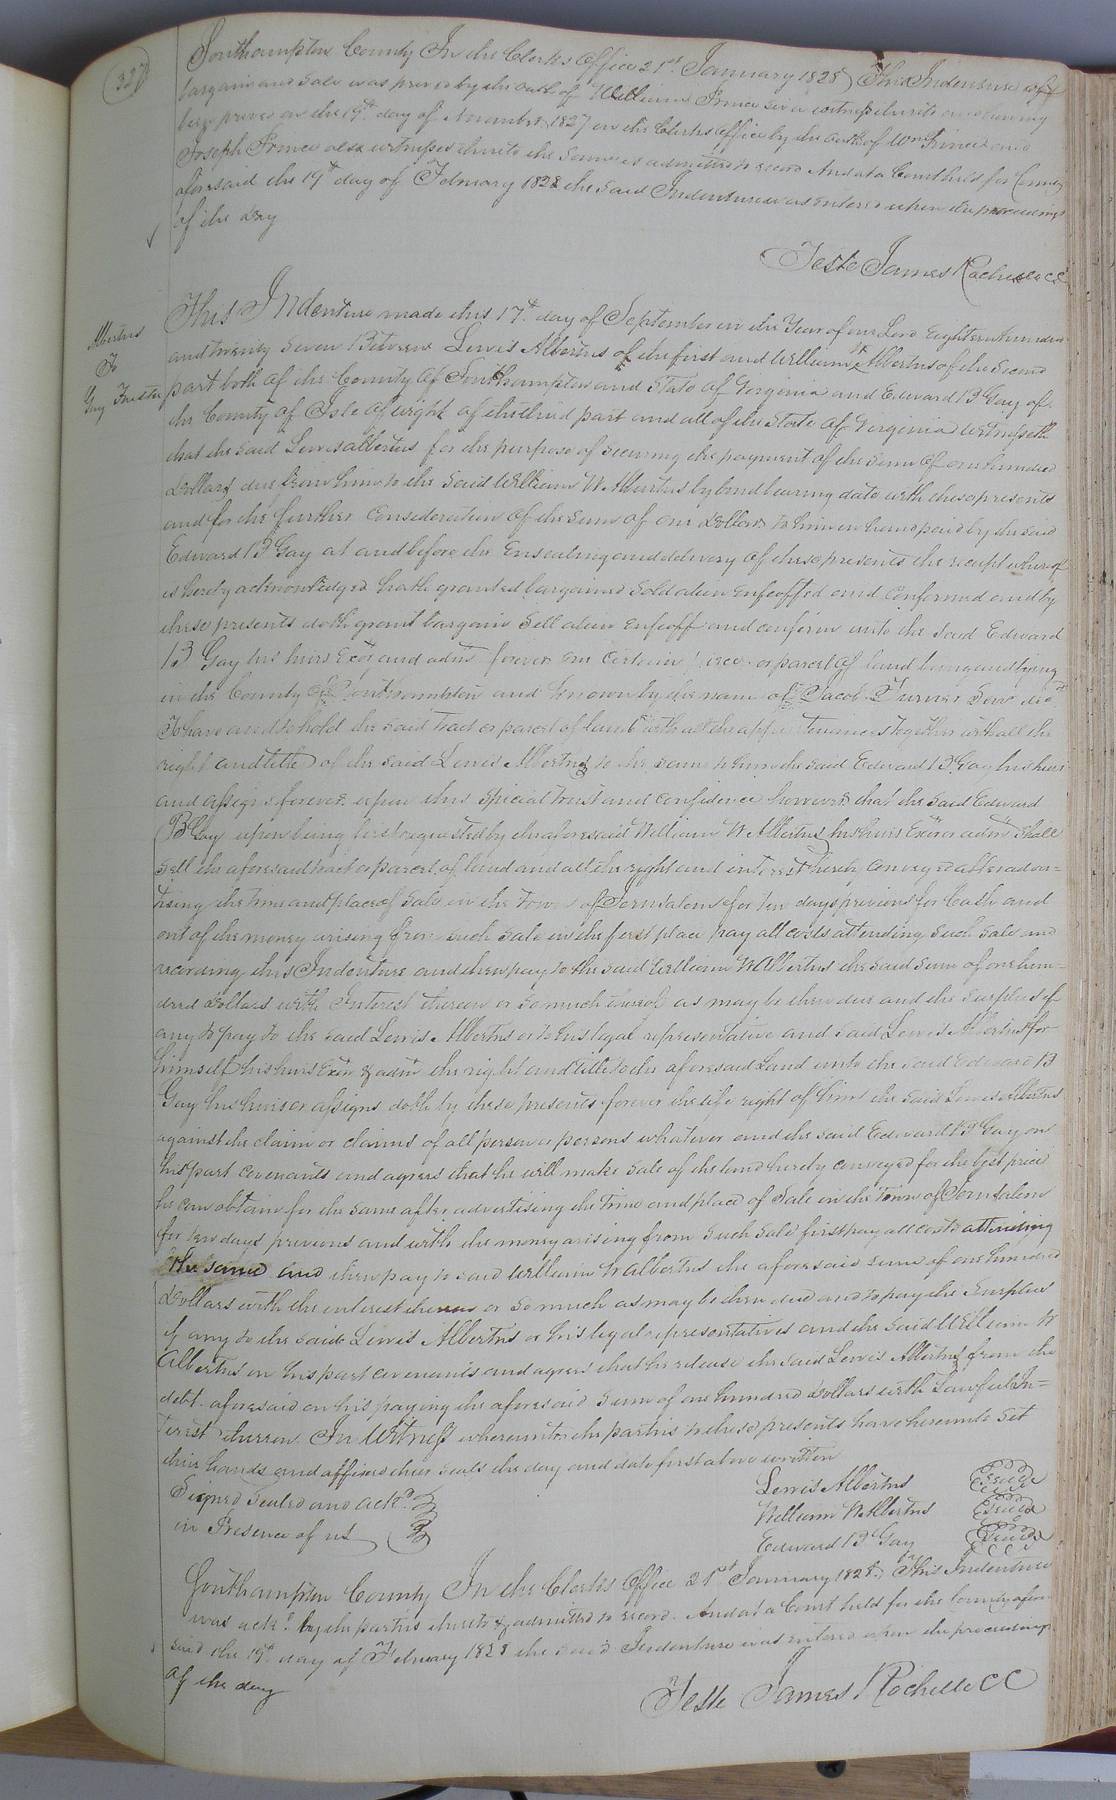 327
Southampton County In the Clerks Office 21st January 1828 This Indenture of
bargain and sale was proved by the oath of William Prince Sen a witness thereto and having
been proved on the 19th day of November 1827 in the Clerks office by the oath of Wm Prince and
Joseph Prince also witnesses thereto the same is admitted to record And at a Court held for County
aforesaid the 19th day of February 1828 the said Indenture was entered upon the proceedings
of the day
Teste James Rochelle CC
Albertus
To
Gay Trustee
This Indenture made this 17th day of September in the Year of our Lord Eighteen hundred
and twenty Seven Between Lewis Albertus of the first and William W Albertus of the Second
part both of the County of Southampton and State of Virginia and Edward B Gay of
the County of Isle of wight of the third part and all of the State of Virginia Witnesseth
that the said Lewis albertus for the purpose of securing the payment of the sum of one hundred
Dollars due from him to the said William W. Albertus by bond bearing date with these presents
and for the further Consideration of the sum of one Dollar to him in hand paid by the said
Edward B Gay at and before the Ensealing and delivery of these presents the receipt whereof
is hereby acknowledged hath granted bargained Sold alien enfeoffed and Conformed and by
these presents doth grant bargain Sell alien enfeoff and confirm unto the said Edward
B Gay his heirs Exors and admrs forever one certain piece or parcel of land being and lying
in the County of Southampton and known by the name of Jacob Turner
To have and to hold the said tract or parcel of land with all the appurtenances together with all the
right and title of the said Lewis Albertus to the same to him the said Edward B. Gay his heirs
and assigns forever upon this special trust and confidence however that the said Edward
B Gay upon being first requested by the aforesaid William W Albertus his heirs Exors or admrs shall
sell the aforesaid tract or parcel of land and all the right and interest herein conveyed after adver=
tising the time and place of Sale in the Town of Jerusalem for ten days previous for Cash and
out of the money arising from such sale in the first place pay all costs attending such Sale and
recording this Indenture and then pay to the said William W Albertus the said sum of one hun=
dred Dollars with Interest thereon or so much thereof as may be then due and the surplus if
any to pay to the said Lewis Albertus or to his legal representative and said Lewis Albertus for
himself his heirs Exors & admrs the right and title to the aforesaid Land unto the said Edward B
Gay his heirs or assigns doth by these presents forever the life right of him the said Lewis Albertus
against the claim or claims of all person or persons whatever and the said Edward B Gay on
his part covenants and agrees that he will make sale of the land hereby conveyed for the best price
he can obtain for the same after advertising the time and place of Sale in the Town of Jerusalem
for ten days previous and with the money arising from such sale first pay all costs attending
the same and then pay to said William W Albertus the aforesaid sum of one hundred
Dollars with the interest thereon or so much as may be then due and to pay the Surplus
if any to the said Lewis Albertus or his legal representatives and the said William W
Albertus on his part covenants and agrees that he release the said Lewis Albertus from the
debt aforesaid on his paying the aforesaid sum of one hundred Dollars with Lawful In=
terest thereon In Witness whereunto the parties to these presents have hereunto set
their hands and affixed their seals the day and date first above written
Signed Sealed and ackd
in Presence of us
Lewis Albertus Seal
William W Albertus Seal
Edward B Gay Seal
Southampton County In the Clerks Office 21st January 1828 This Indenture
was ackd by the parties thereto & admitted to record. And at a Court held for the County afore
said the 19th day of February 1828 the said Indenture was entered upon the proceedings
of the day
Teste James Rochelle CC